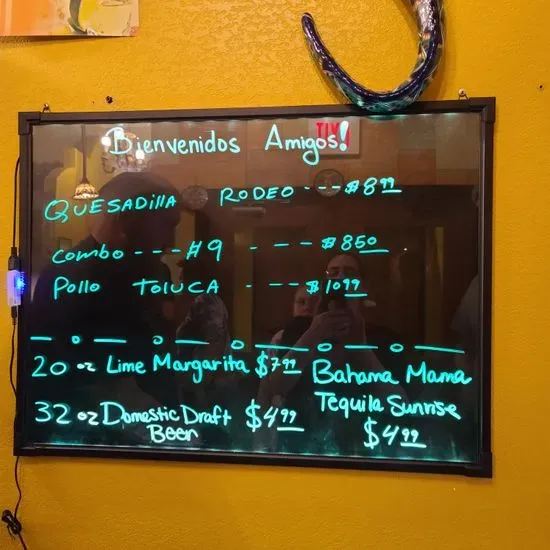 Bienvenidos Amigos!
QUESADIllA RODEO - - - $8.99
Combo - - - #9 - - - $8.50
Pollo TOLUCA - - - $10.99
20 oz Lime Margarita $7.99
32 oz Domestic Draft Beer $4.99
Bahama Mama
Tequila Sunrise
$4.99